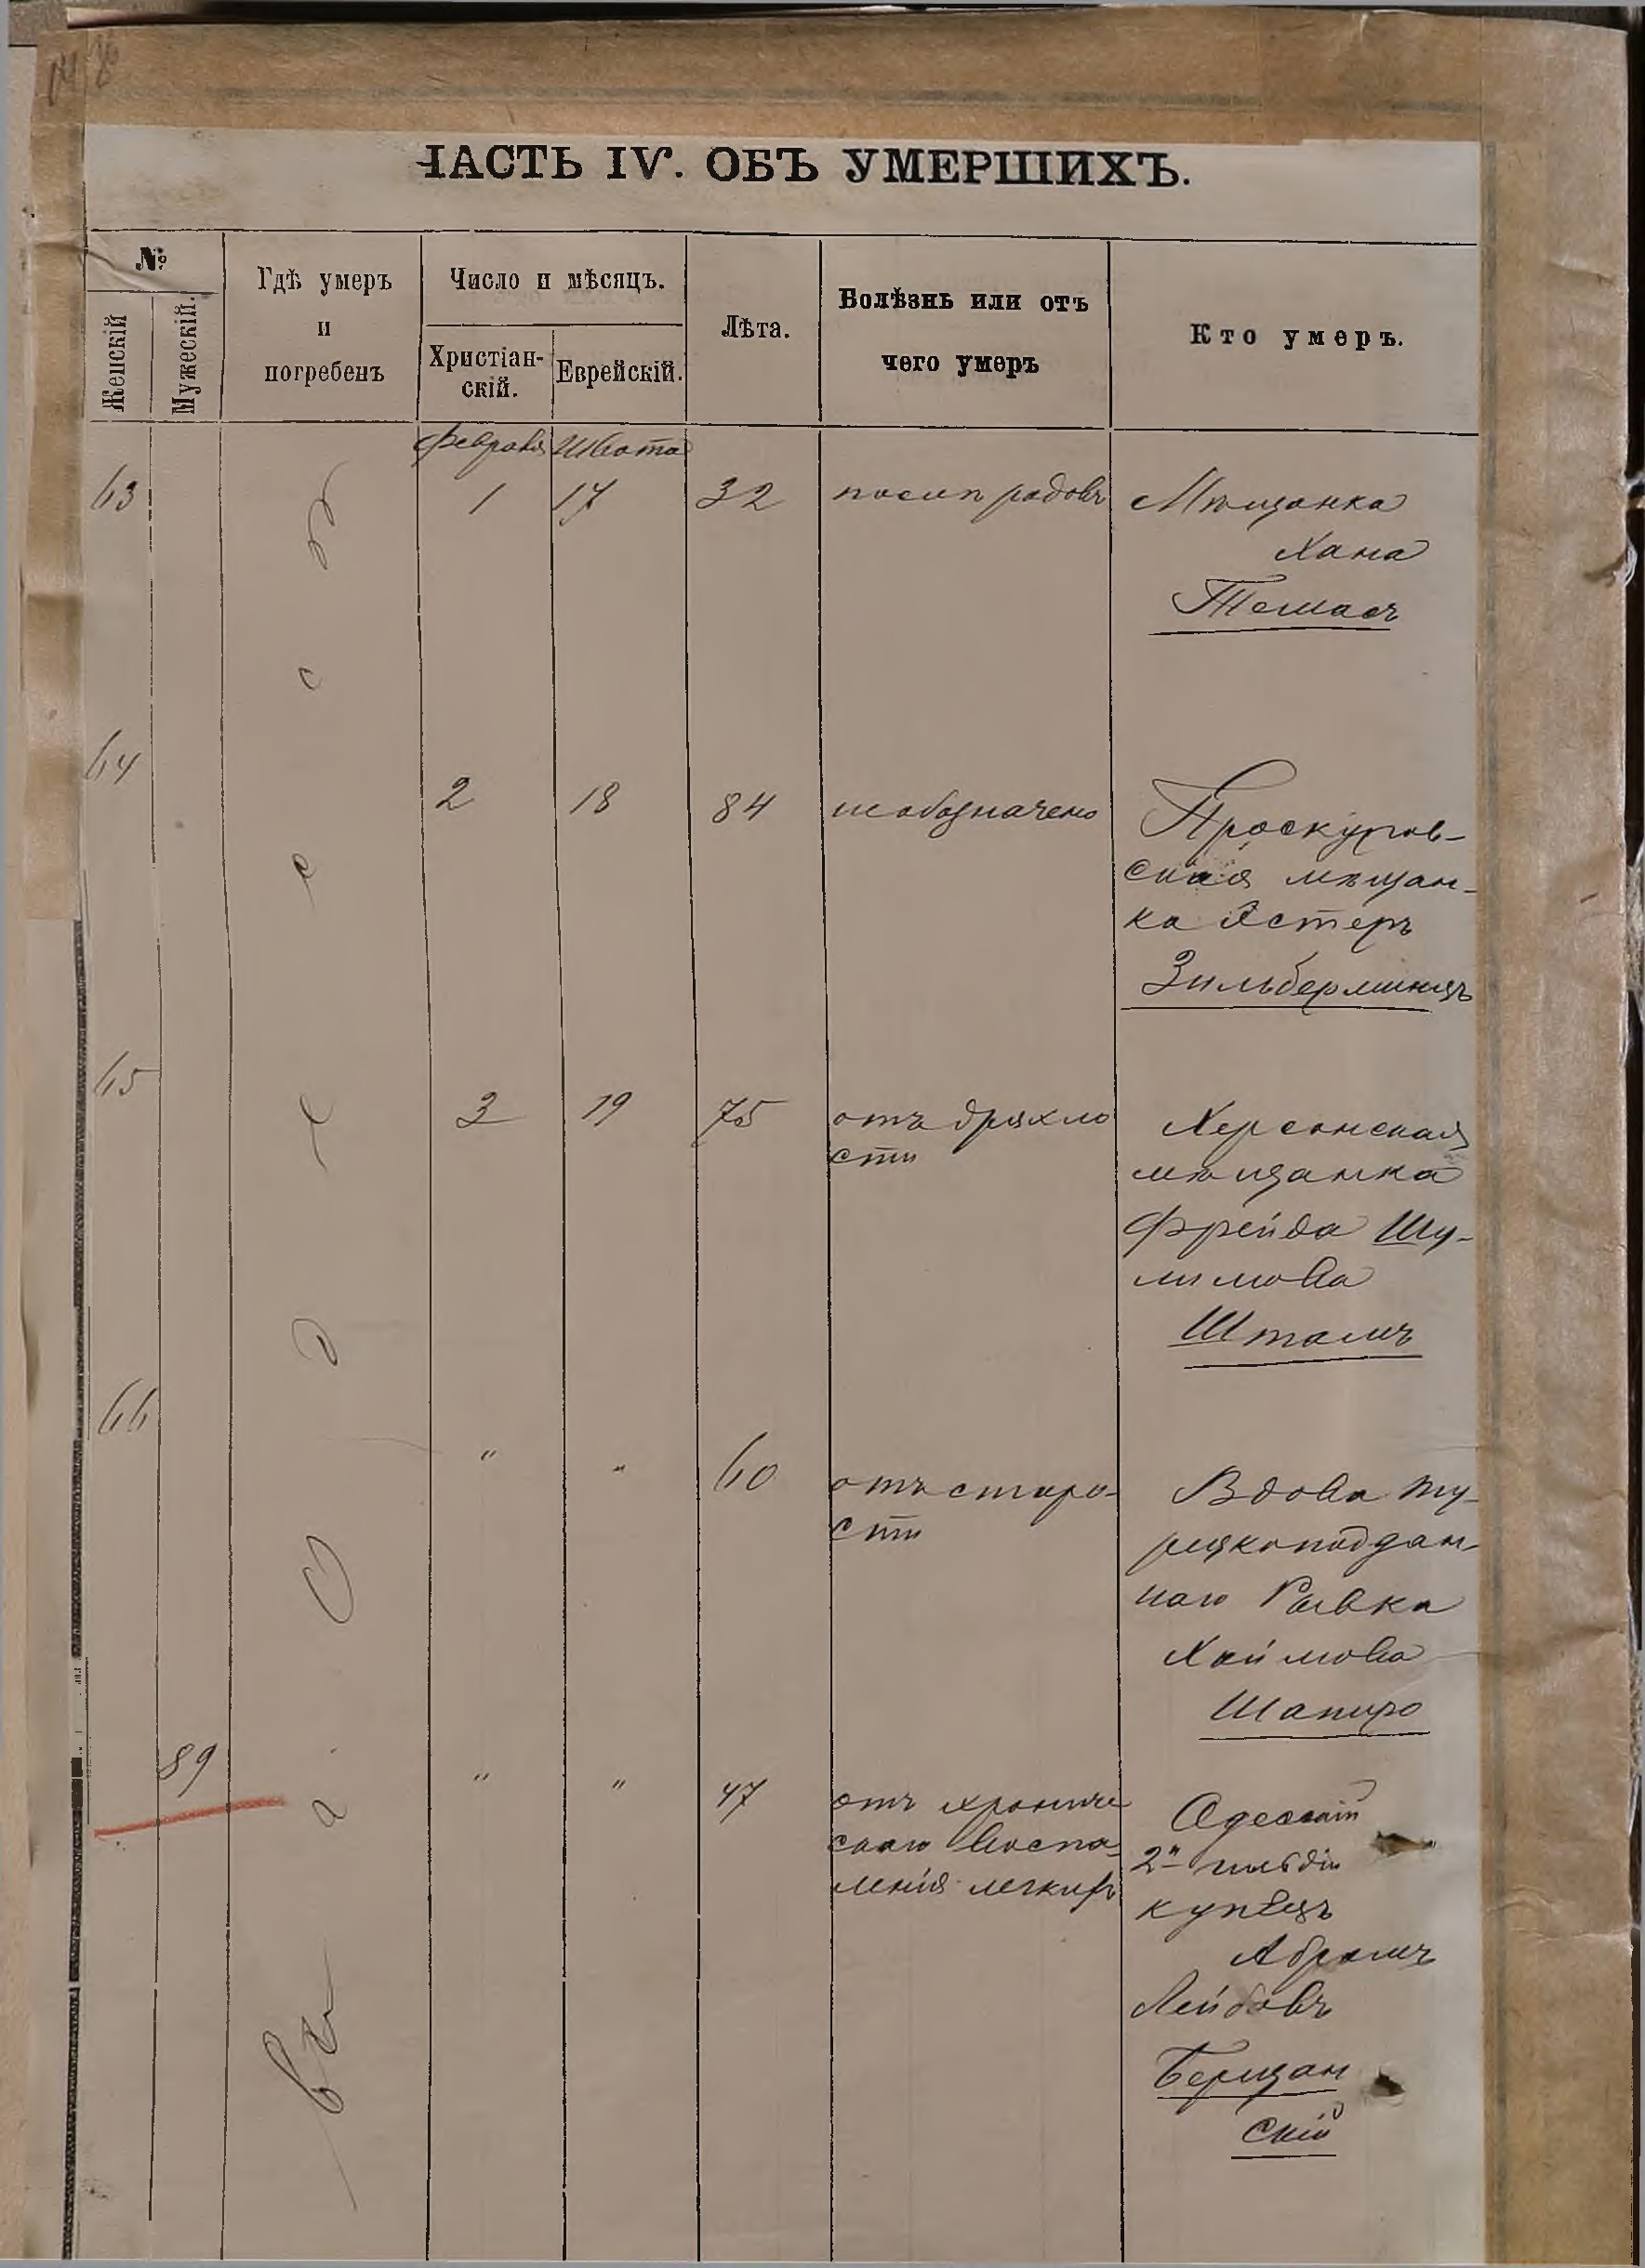 ЧАСТЬ IV. ОБЪ УМЕРШИХЪ.
№
Женскій
Мужескій.
Гдѣ умеръ
и
погребенъ
Число и мѣсяцъ.
Христіан-
скій.
Еврейскій.
Лѣта.
Болѣзнь или отъ
чего умеръ
Кто умеръ.
въ Одессѣ
Февраля Швата
63 1 17 32 родовъ Мѣщанка
Хана
64 2 18 84 не обозначено Проскуров-
ская мѣщан-
ка Эстеръ
Зильберминцъ
65 3 19 75 отъ дряхло
сти
Херсонская
мѣщанка
Фрейда Шу-
лимова
Шталь
66 " " 60 отъ старо-
сти
Вдова ту-
рецкоподдан-
наго Ривка
Хаимова
Шапиро
89 " " 47 отъ хрониче
скаго воспа-
ленія легкихъ
Одесскій
2й гильдіи
купецъ
Абрамъ
Лейбовъ
Берщан
скій